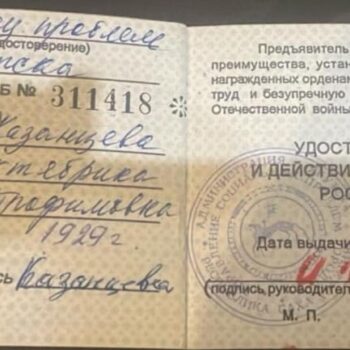 у проблем
достоверение)
ска
Б № 311418
Казанцева
ктябрина
трофимовна
1929 г
сь Казанцева
Предъявитель
преимущества, устан
награжденных орденам
труд и безупречную
Отечественной войны
УДОСТ
И ДЕЙСТВИ
РОС
Дата выдачи
(подпись руководител
М. П.